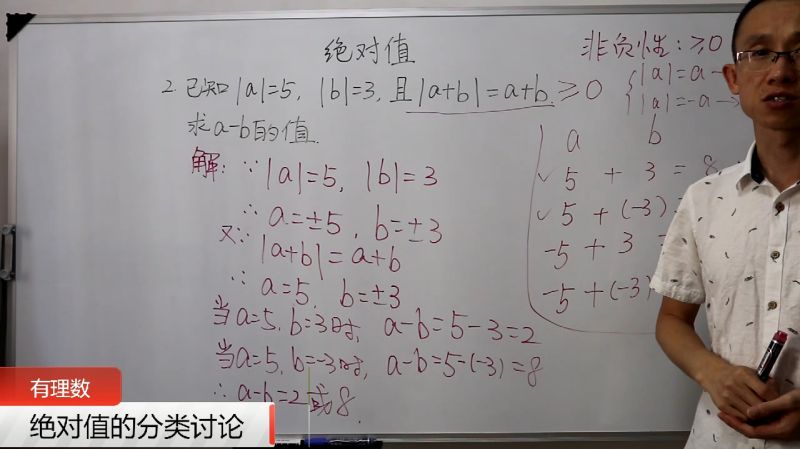 绝对值
非负性:≥0
|a|=a
|a|=-a
2. 已知|a|=5, |b|=3, 且|a+b|=a+b. ≥0
求a-b的值.
a b
✓ 5 + 3 = 8
✓ 5 + (-3)
-5 + 3
-5 + (-3)
解: ∵|a|=5, |b|=3
∴ a=±5, b=±3
又∵|a+b|=a+b
∴ a=5, b=±3
当a=5, b=3时, a-b=5-3=2
当a=5, b=-3时, a-b=5-(-3)=8
∴ a-b=2或8.
有理数
绝对值的分类讨论